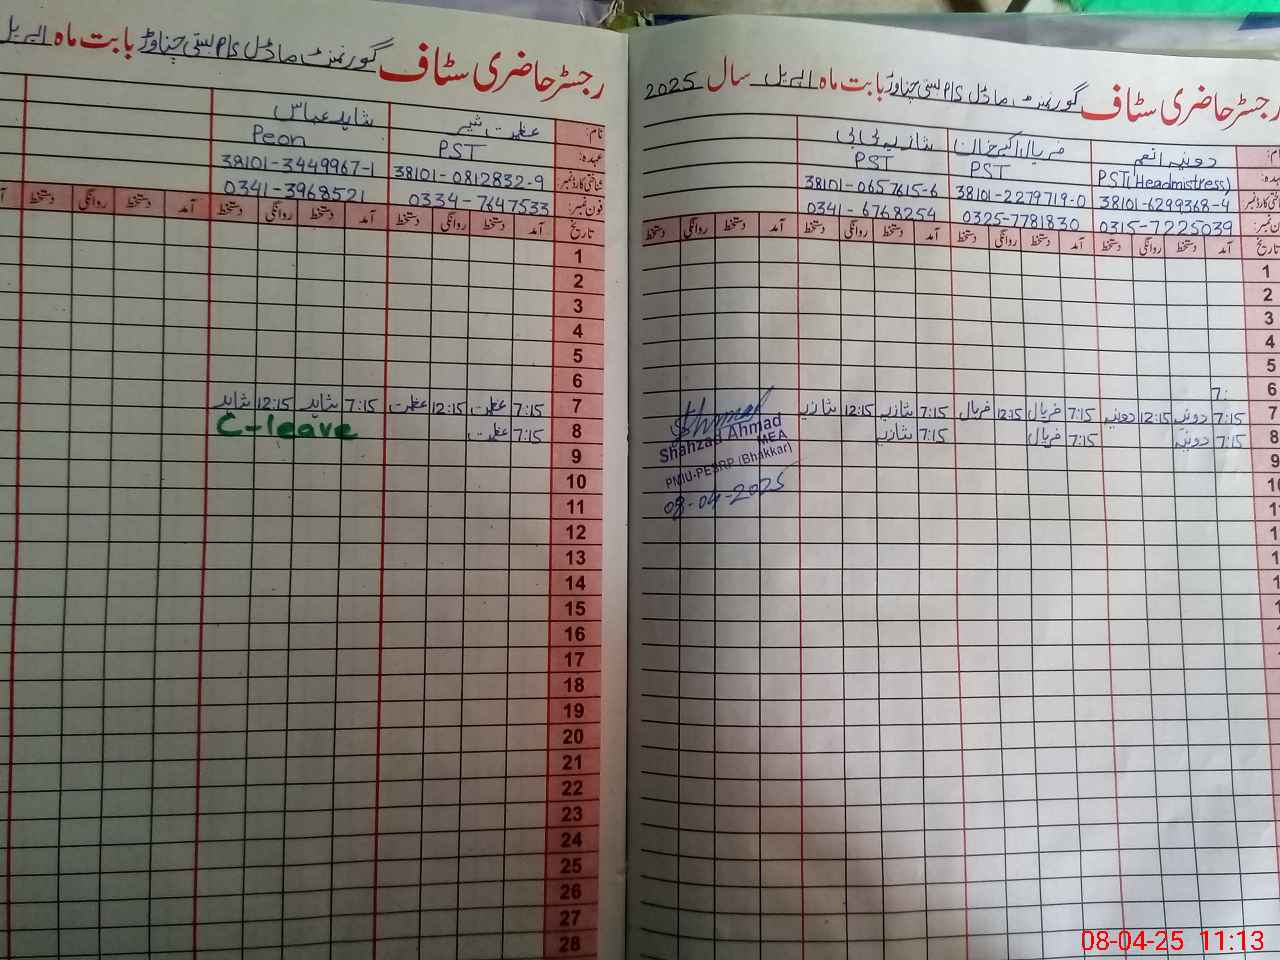 رجسٹر حاضری سٹاف گورنمنٹ ماڈل P/S بستی چناوڑ بابت ماہ اپریل سال 2025
نام: دونیہ انعم
عہدہ: PST(Headmistress) PST PST
شناختی کارڈ نمبر: 38101-6299368-4 38101-2279719-0 38101-0657615-6
فون نمبر: 0315-7225039 0325-7781830 0341-6768254
تاریخ آمد دستخط روانگی دستخط آمد دستخط روانگی دستخط آمد دستخط روانگی دستخط آمد دستخط روانگی دستخط
1
2
3
4
5
6 7:
7 7:15 دونیہ 12:15 دونیہ 7:15 فریال 12:15 فریال 7:15 شازیہ 12:15 شازیہ
8 7:15 دونیہ 7:15 فریال 7:15 شازیہ
Shahzad Ahmad
MEA
PMIU-PESRP (Bhakkar)
08-04-2025
9
10
11
رجسٹر حاضری سٹاف گورنمنٹ ماڈل P/S بستی چناوڑ بابت ماہ اپریل
نام: عظمت شیر شاہد عباس
عہدہ: PST Peon
شناختی کارڈ نمبر: 38101-0812832-9 38101-3449967-1
فون نمبر: 0334-7647533 0341-3968521
تاریخ آمد دستخط روانگی دستخط آمد دستخط روانگی دستخط آمد دستخط روانگی دستخط
1
2
3
4
5
6
7 7:15 عظمت 12:15 عظمت 7:15 شاہد 12:15 شاہد
8 7:15 عظمت C-leave
9
10
11
12
13
14
15
16
17
18
19
20
21
22
23
24
25
26
27
28
08-04-25 11:13